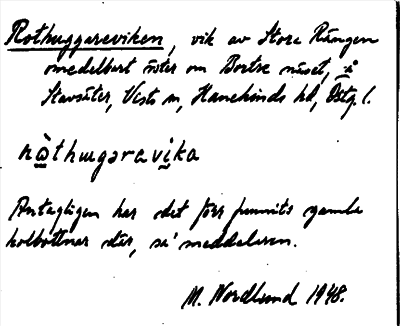 Rothuggareviken, vik av Stora Rängen
omedelbart öster om Bortre näset, i
Stavsäter, Vists sn, Hanekinds hd, Östg. l.
ròthugəravika
Antagligen har det förr funnits gamla
kolbottnar där, sa' meddelaren.
M. Nordlund 1948.